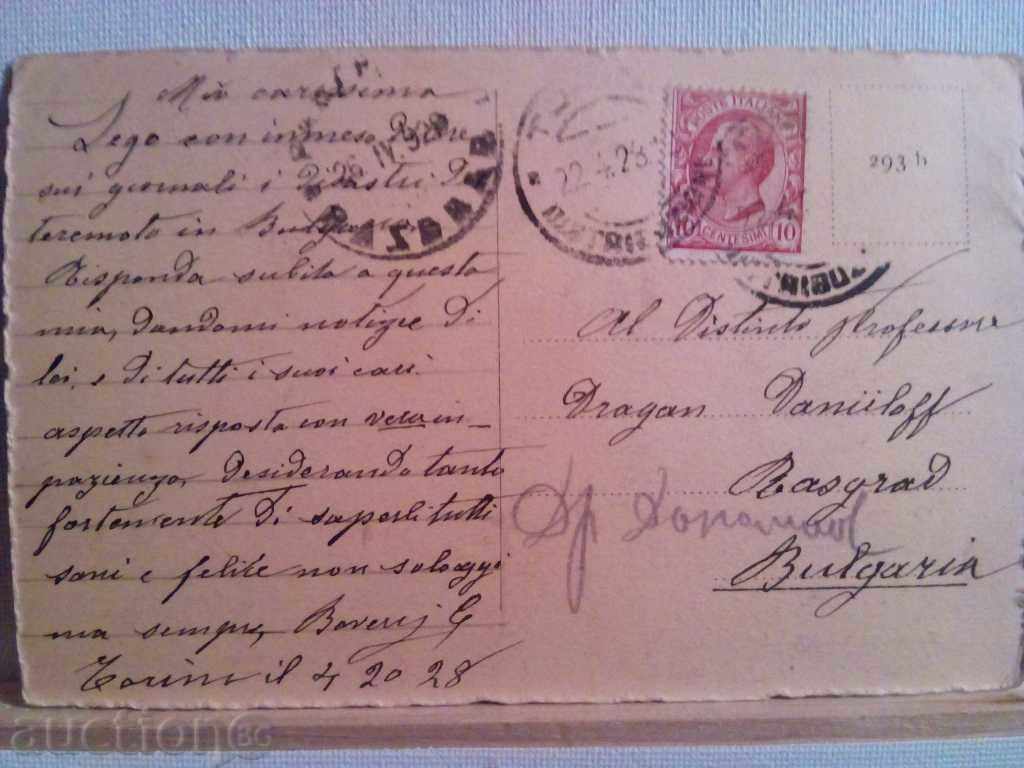 Mio carissimo
Lego con inmeso dolore
sui giornali i disastri di
teremoto in Bulgaria
Risponda subito a questa
mia, dandomi notizie di
lei, e di tutti i suoi cari.
aspetto risposta con vera in=
pazienza, desiderando tanto
fortemente di saperli tutti
sani e felice non solo oggi
ma sempre, Boverij G
Torino il 4 20 28
26 IV. 928
22.4.28
POSTE ITALIANE
10 CENTESIMI 10
293 h
Al Distinto Professore
Dragan Daniiloff
Rasgrad
Bulgaria
auction BG